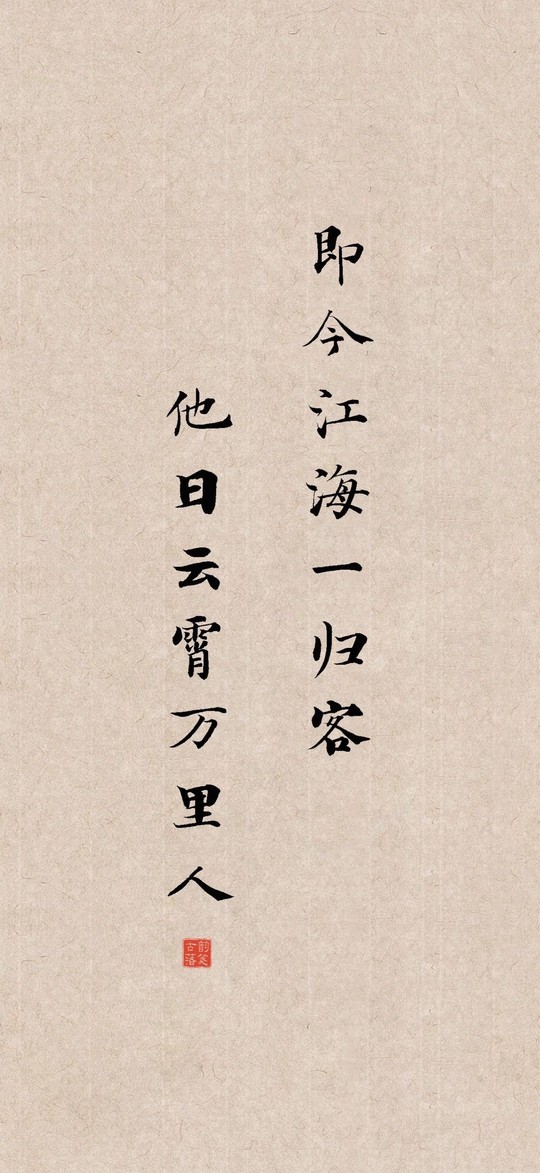 即今江海一归客
他日云霄万里人